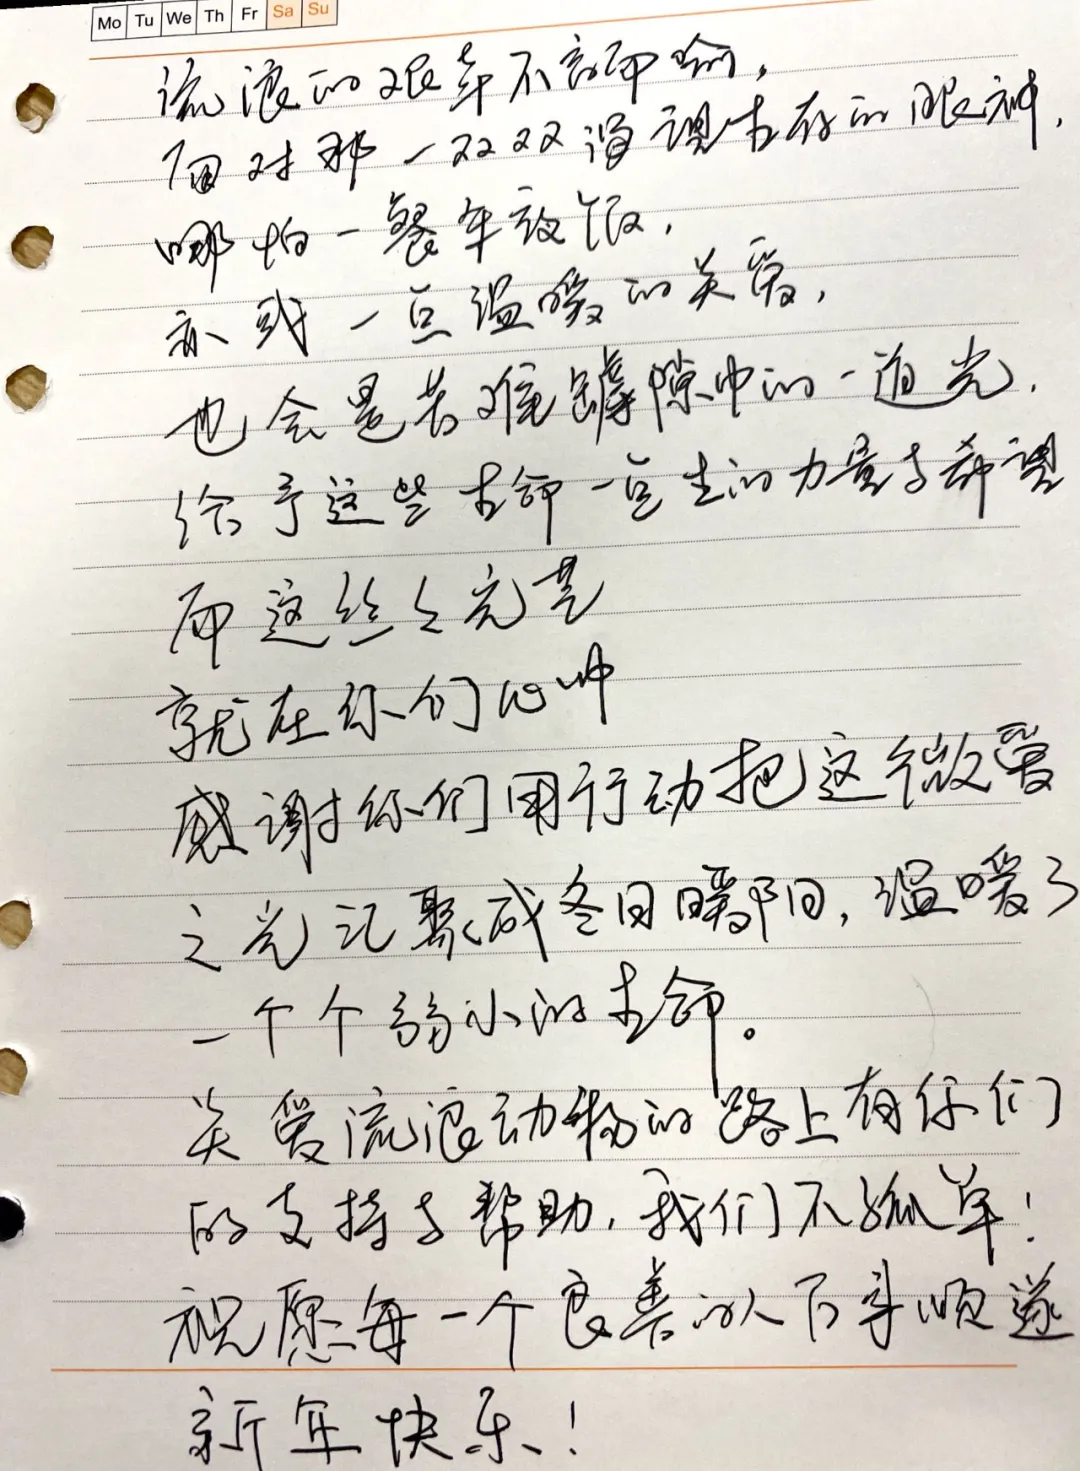 Mo Tu We Th Fr Sa Su
流浪的艰辛不言而喻，
面对那一双双渴望生存的眼神，
哪怕一餐年夜饭，
亦或一点温暖的关爱，
也会是苦难罅隙中的一道光．
给予这些生命一点生的力量与希望
而这丝丝光芒
就在你们心中
感谢你们用行动把这个微爱
之光汇聚成冬日暖阳，温暖了
一个个弱小的生命。
关爱流浪动物的路上有你们
的支持与帮助，我们不孤单！
祝愿每一个良善的人万事顺遂
新年快乐！